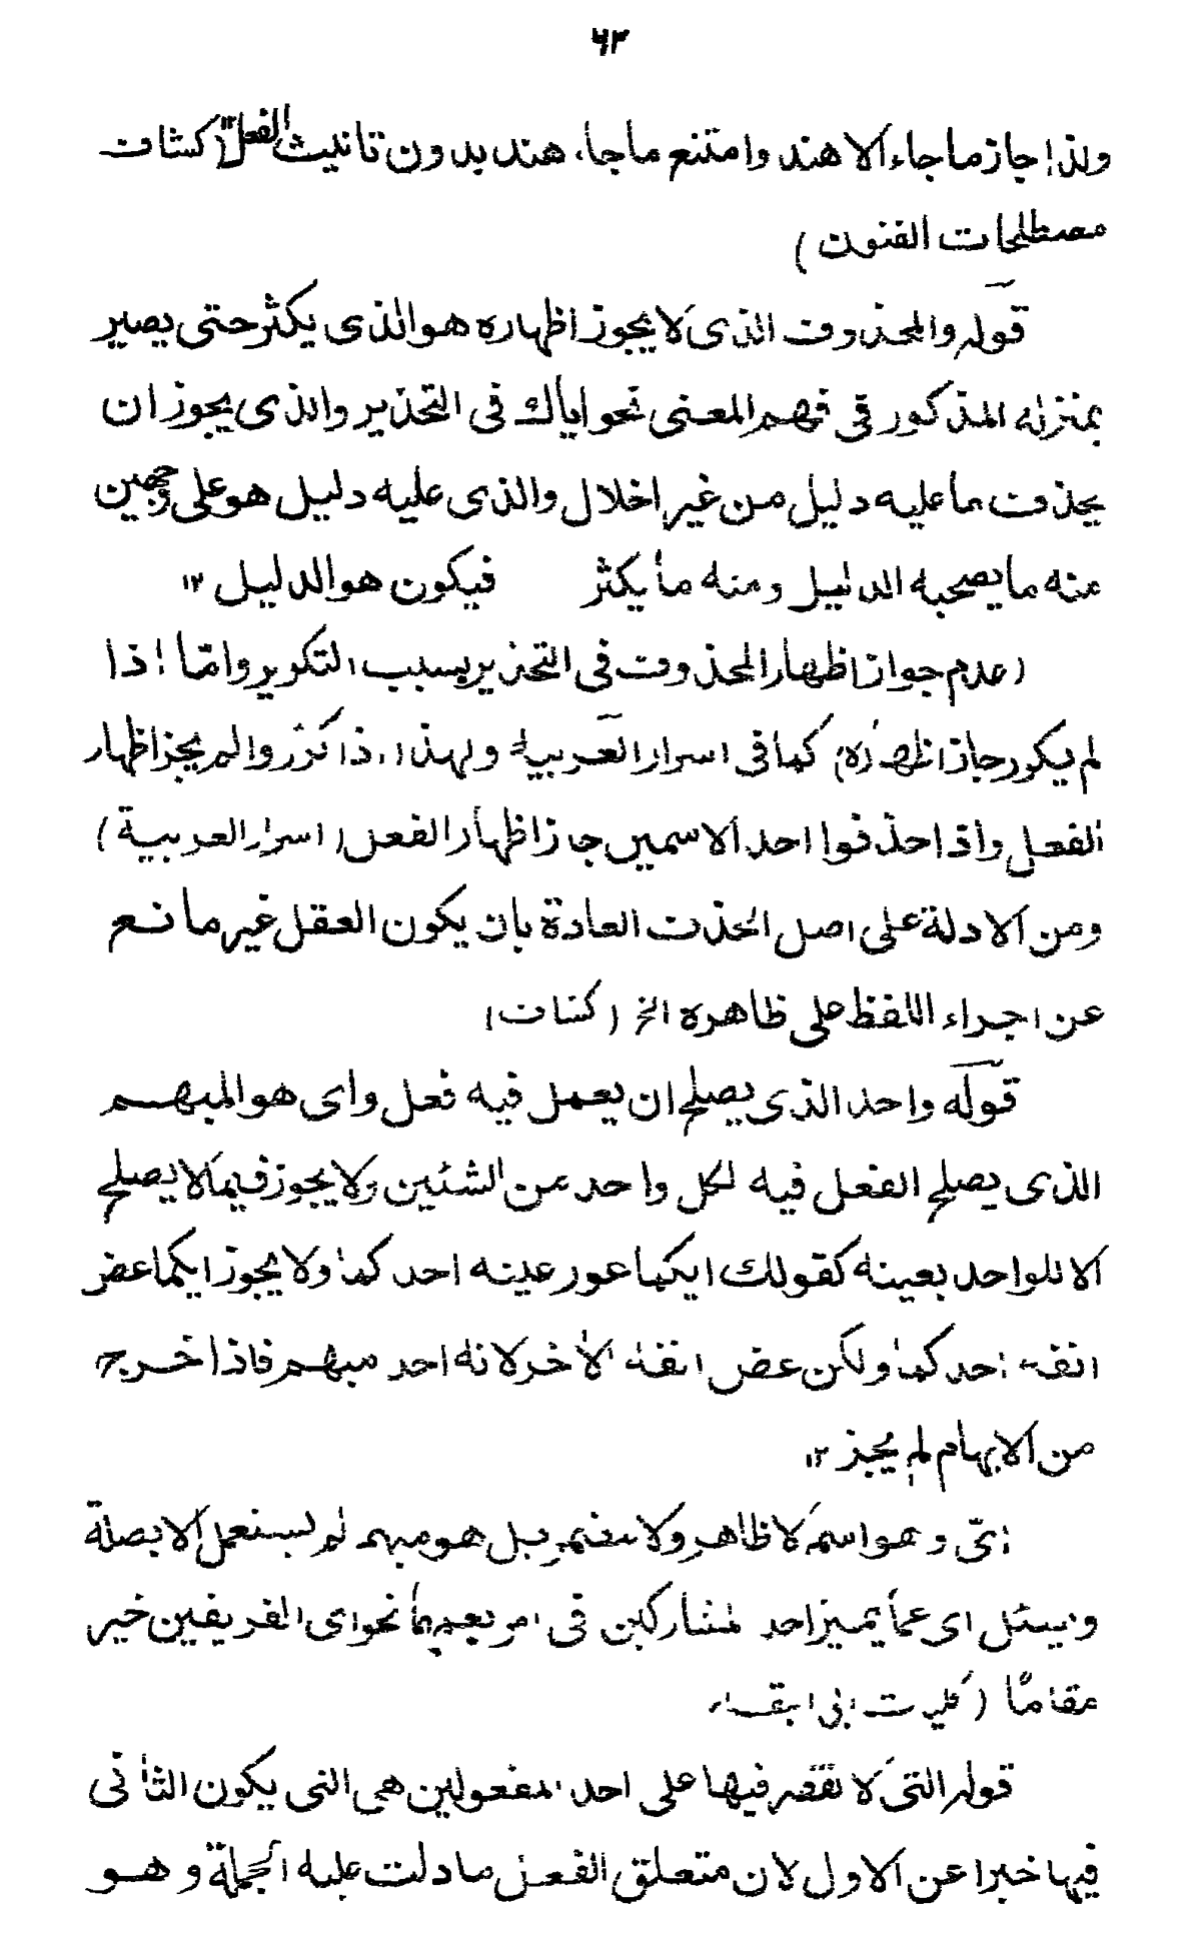 ٦٣
ولذا جاز ما جاء الا هند وامتنع ما جاء هند بدون تانيث الفعل ١٢ (كشاف
مصطلحات الفنون)
قوله والمحذوف الذى لا يجوز اظهاره هو الذى يكثر حتى يصير
بمنزله المذكور فى فهم المعنى نحو اياك فى التحذير والذى يجوز ان
يحذف ما عليه دليل من غير اخلال والذى عليه دليل هو على وجهين
منه ما يصحبه الدليل ومنه ما يكثر فيكون هو الدليل ١٢
(عدم جواز اظهار المحذوف فى التحذير بسبب التكرير وامّا اذا
لم يكرر جاز اظهاره كما فى اسرار العربية ولهذا اذا كرّروا لم يجز اظهار
الفعل واذا حذفوا احد الاسمين جاز اظهار الفعل (اسرار العربية)
ومن الادلة على اصل الحذف العادة بان يكون العقل غير مانع
عن اجراء اللفظ على ظاهره الخ (كشاف)
قوله واحد الذى يصلح ان يعمل فيه فعل واى هو المبهم
الذى يصلح الفعل فيه لكل واحد من الشئين ولا يجوز فيما لا يصلح
الا للواحد بعينه كقولك ايكما عور عينه احدكما ولا يجوز ايكما عض
انفه احدكما ولكن عض انفه الأخر لانه احد مبهم فاذا خرج
من الابهام لم يجز ١٢
اىّ وهو اسم لا ظاهر ولا مضمر بل هو مبهم لم يستعمل الا بصلة
ويسئل اى عما يميز احد المشاركين فى امر يعمهما نحو اى الفريقين خير
مقامًا (كليات ابى البقاء
قوله التى لا تقتصر فيها على احد المفعولين هى التى يكون الثانى
فيها خبرا عن الاول لان متعلق الفعل ما دلت عليه الجملة وهو